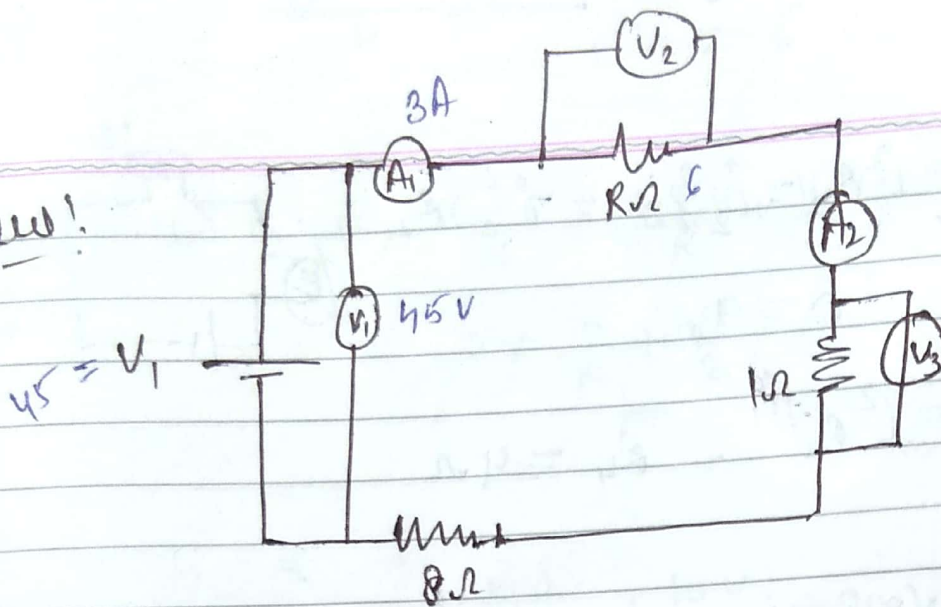 V₂
3A
A₁
RΩ 6
A₂
V₁ 45V
45 = V₁
1Ω
V₃
8Ω